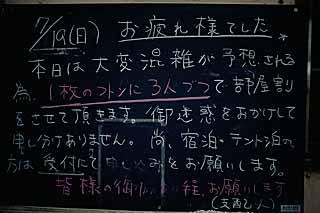 7/19(日) お疲れ様でした。
本日は大変混雑が予想される
為、1枚のフトンに3人づつで部屋割
をさせて頂きます。御迷惑をおかけして
申し分けありません。尚、宿泊・テント泊の
方は受付にて申し込みをお願いします。
皆様の御 お願いします
(支配人)